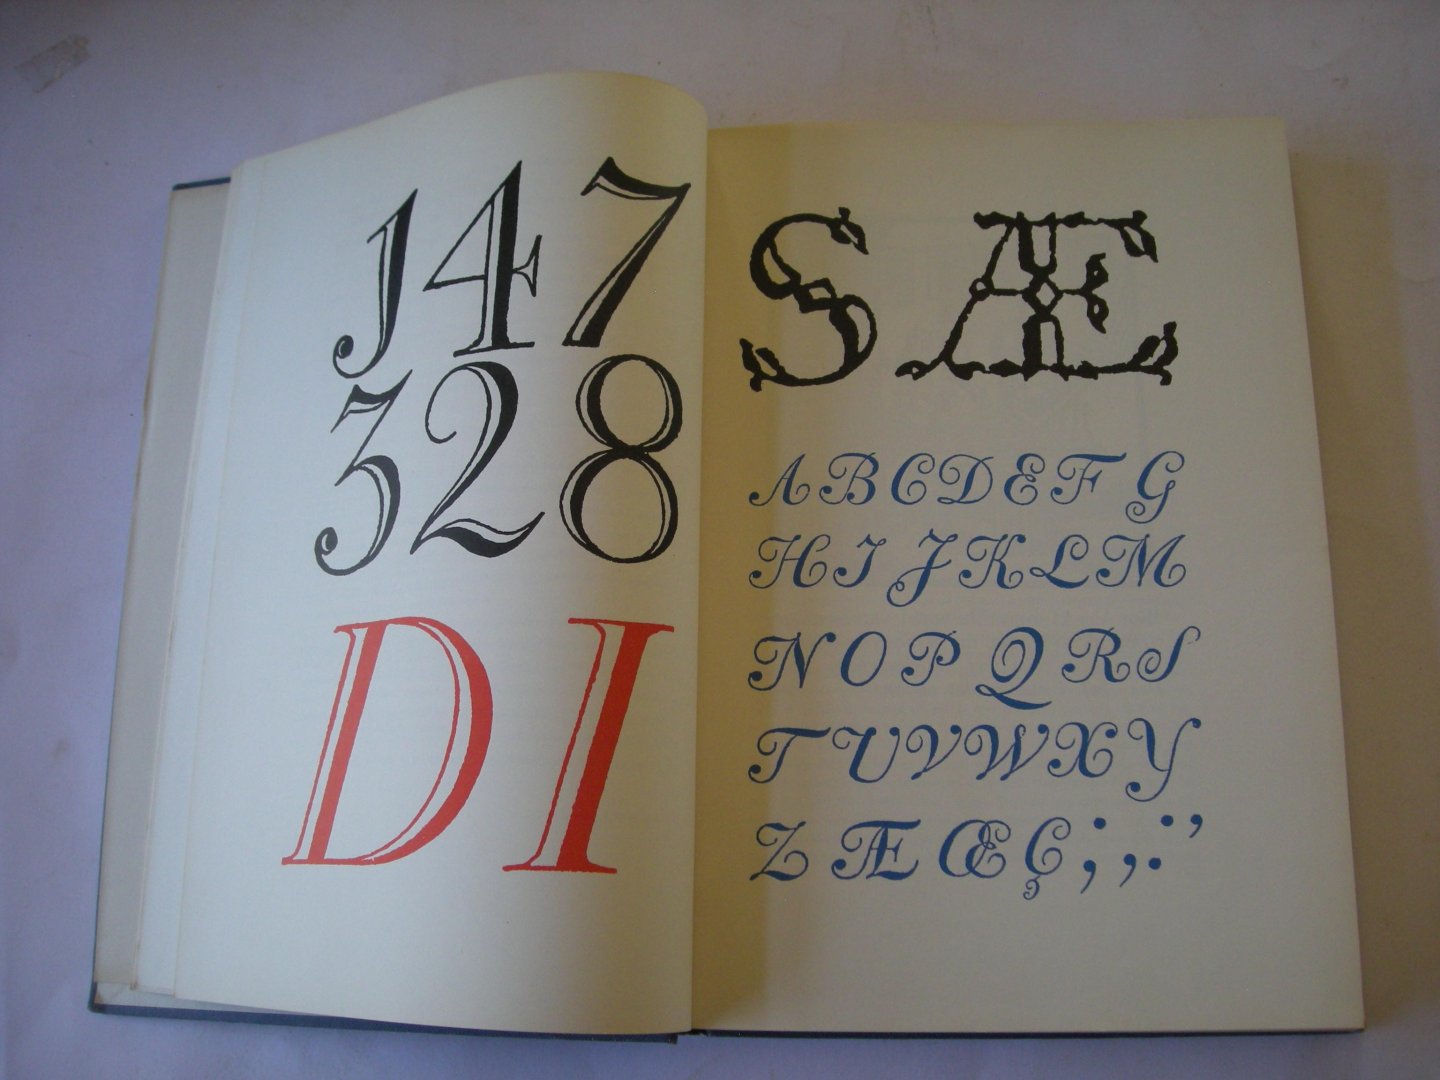 J47
328
DI
SÆ
ABCDEFG
HIJKLM
NOPQRS
TUVWXY
ZÆŒÇ;,:’